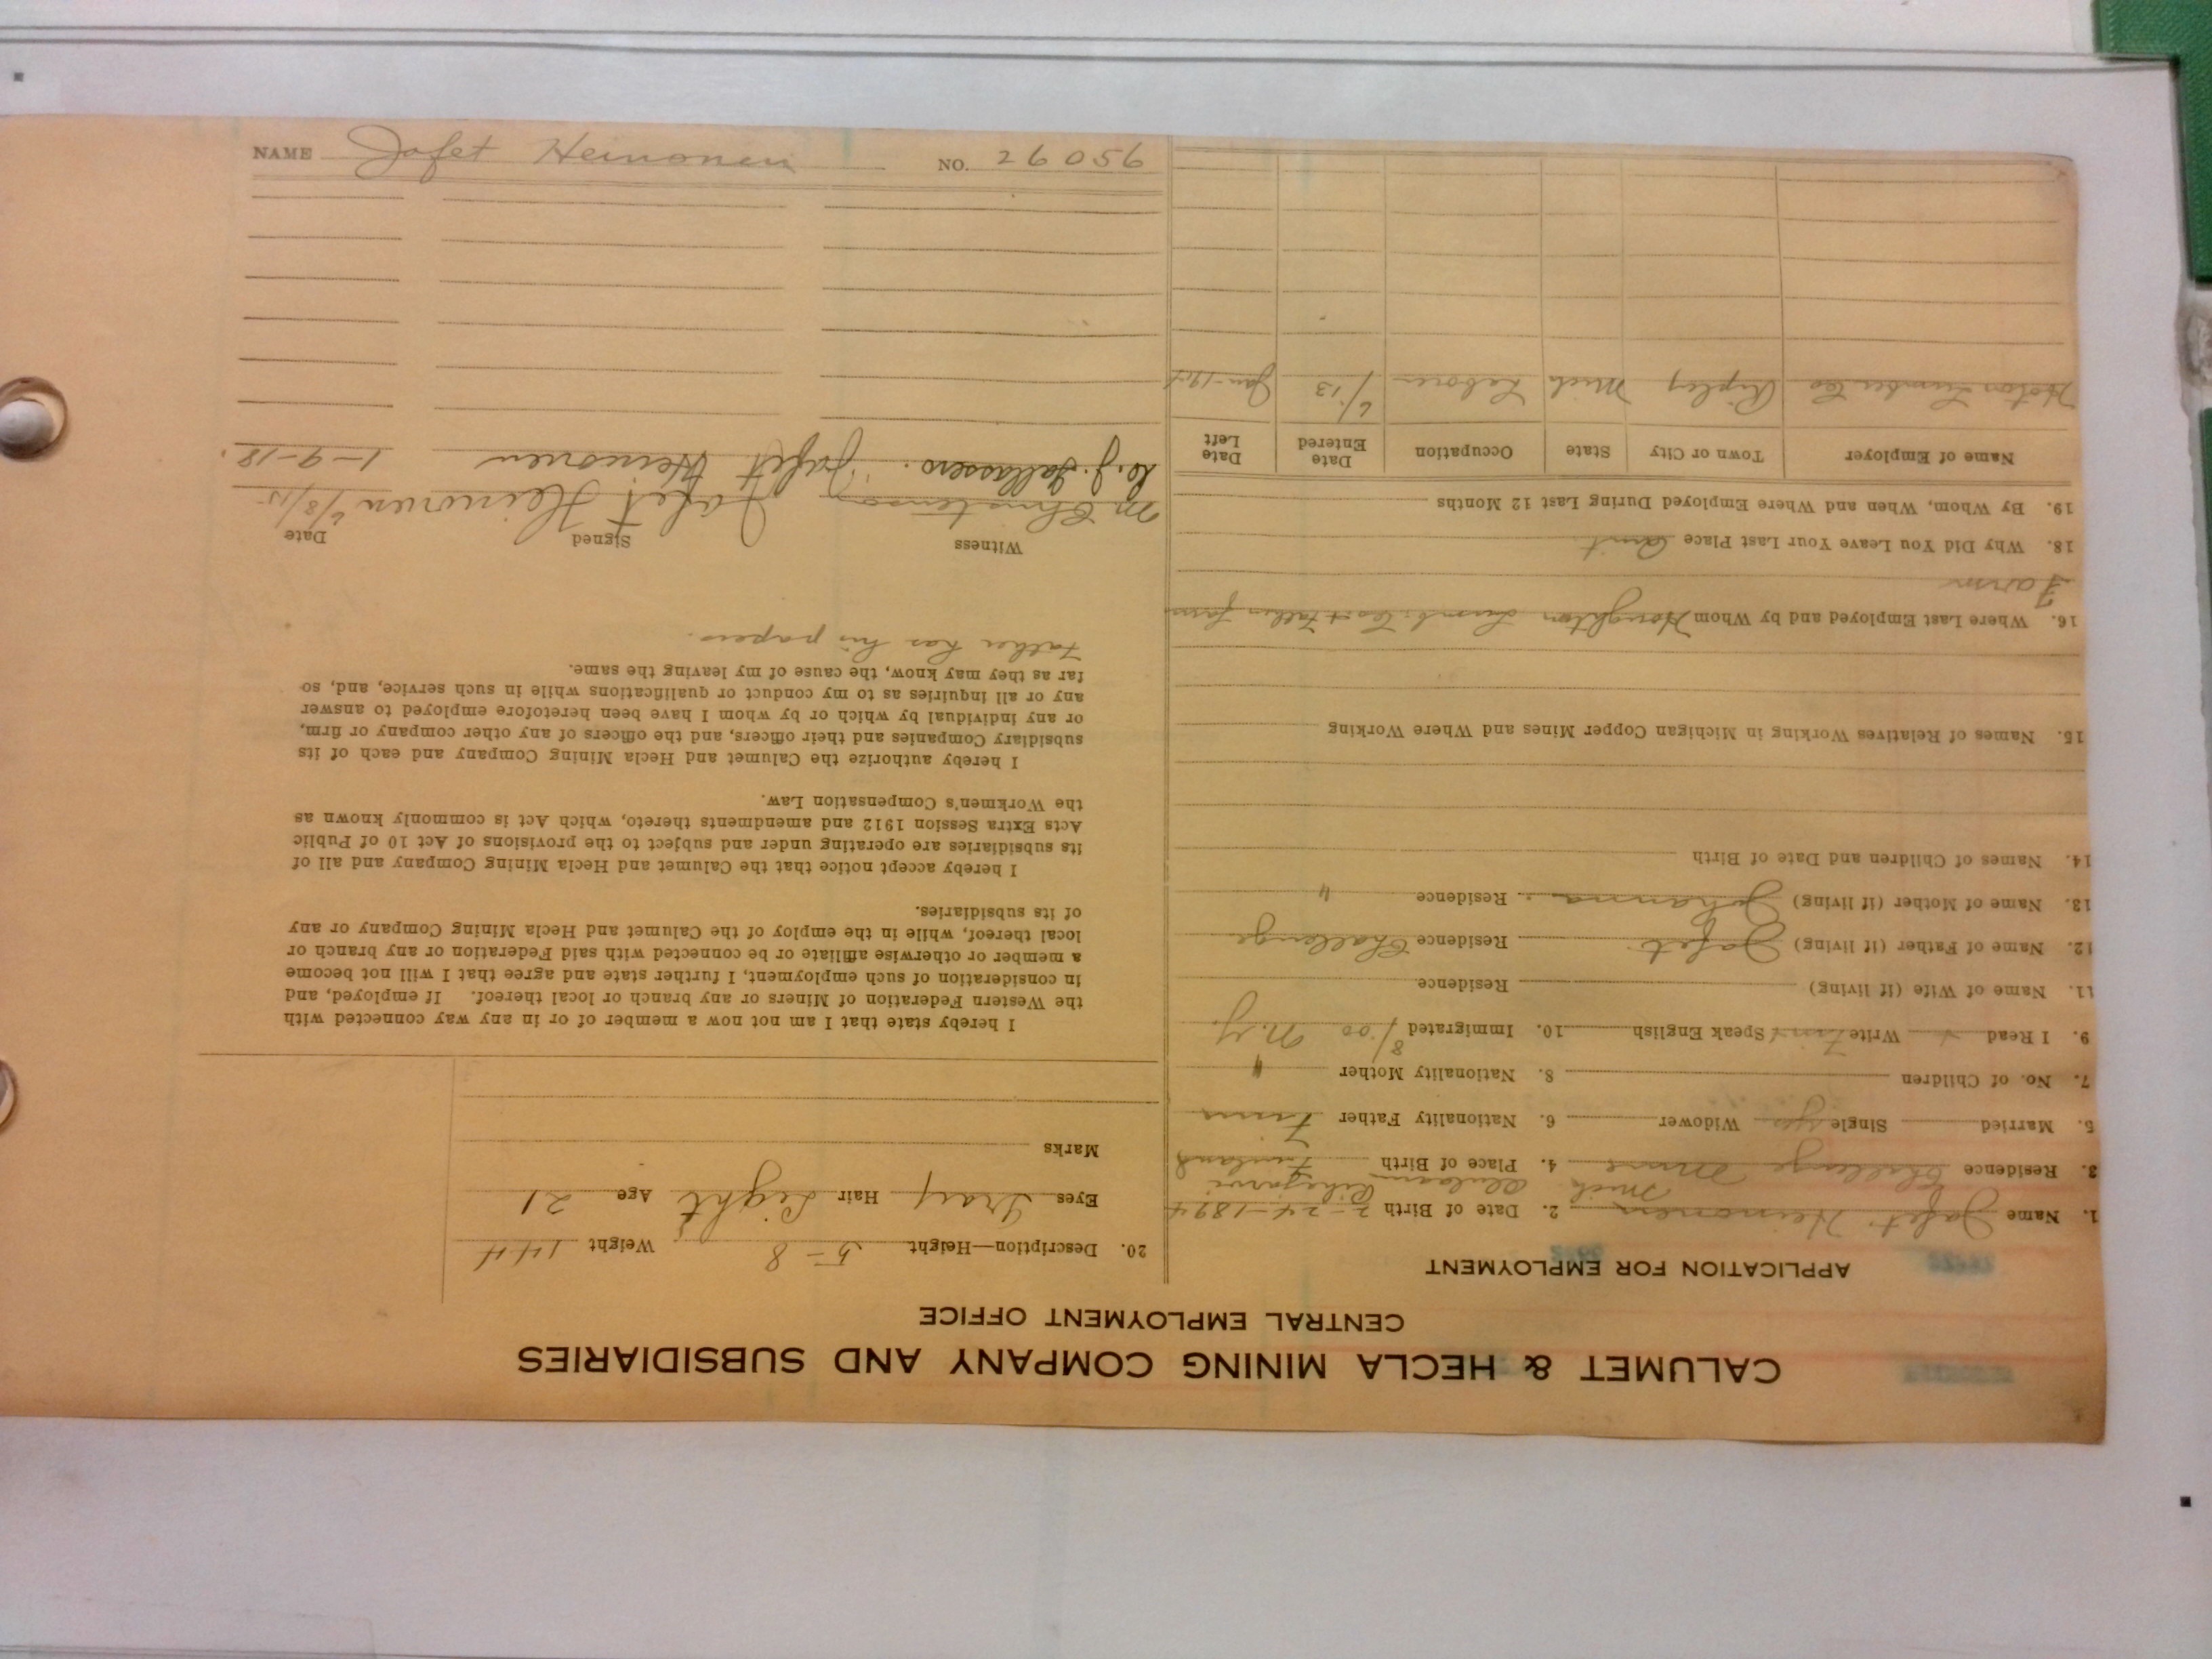 CALUMET & HECLA MINING COMPANY AND SUBSIDIARIES
CENTRAL EMPLOYMENT OFFICE
APPLICATION FOR EMPLOYMENT
1. Name Jafet Heinonen 2. Date of Birth 2-24-1894
Mich
3. Residence Challenge Mine 4. Place of Birth Finland
5. Married Single yes Widower 6. Nationality Father Finn
7. No. of Children 8. Nationality Mother "
9. I Read Write Finn Speak English 10. Immigrated 8/00 N.Y.
11. Name of Wife (if living) Residence
12. Name of Father (if living) Jafet Residence Challenge
13. Name of Mother (if living) Johanna Residence "
14. Names of Children and Date of Birth
15. Names of Relatives Working in Michigan Copper Mines and Where Working
16. Where Last Employed and by Whom Houghton Lumb. Co + Father farm
Farm
18. Why Did You Leave Your Last Place Quit
19. By Whom, When and Where Employed During Last 12 Months
Name of Employer Town or City State Occupation Date Entered Date Left
Hoton Lumber Co Ripley Mich Laborer 6/13 Jan
20. Description—Height 5-8 Weight 144
Eyes Gray Hair Light Age 21
Marks
I hereby state that I am not now a member of or in any way connected with
the Western Federation of Miners or any branch or local thereof. If employed, and
in consideration of such employment, I further state and agree that I will not become
a member or otherwise affiliate or be connected with said Federation or any branch or
local thereof, while in the employ of the Calumet and Hecla Mining Company or any
of its subsidiaries.
I hereby accept notice that the Calumet and Hecla Mining Company and all of
its subsidiaries are operating under and subject to the provisions of Act 10 of Public
Acts Extra Session 1912 and amendments thereto, which Act is commonly known as
the Workmen's Compensation Law.
I hereby authorize the Calumet and Hecla Mining Company and each of its
subsidiary Companies and their officers, and the officers of any other company or firm,
or any individual by which or by whom I have been heretofore employed to answer
any or all inquiries as to my conduct or qualifications while in such service, and, so
far as they may know, the cause of my leaving the same.
Father has his papers.
Witness Signed Date
M Christenson Jafet Heinonen 6/8/15
Jafet Heinonen 1-9-18.
NAME Jafet Heinonen NO. 26056